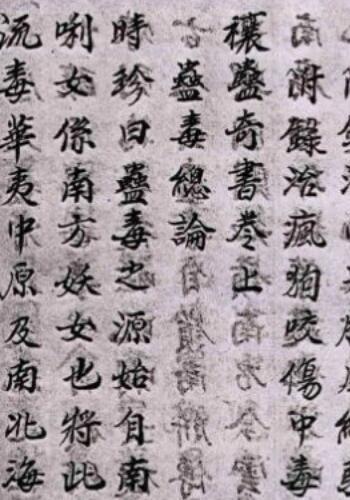 附錄治瘋狗咬傷中毒
禳蠱奇書卷上
蠱毒總論
時珍曰蠱毒之源始自南
唎女係南方妖女也將此
流毒華夷中原及南北海